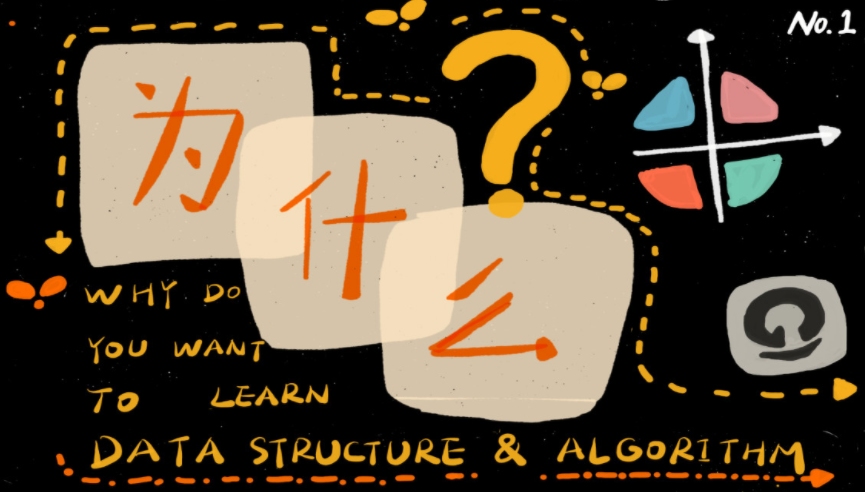 No.1
为什么?
WHY DO
YOU WANT
TO LEARN
DATA STRUCTURE & ALGORITHM